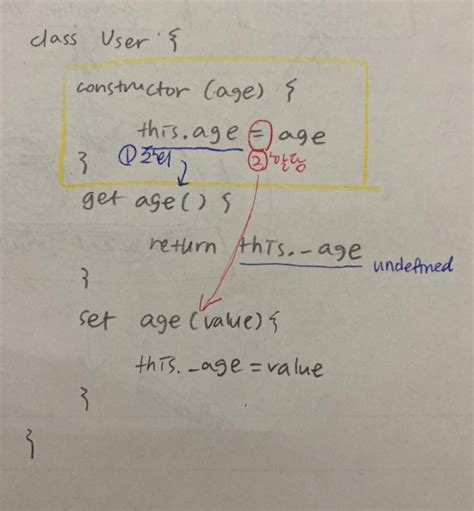 class User {
constructor (age) {
this.age = age
} ① 호출 ② 할당
get age() {
return this._age undefined
}
set age (value) {
this._age = value
}
}